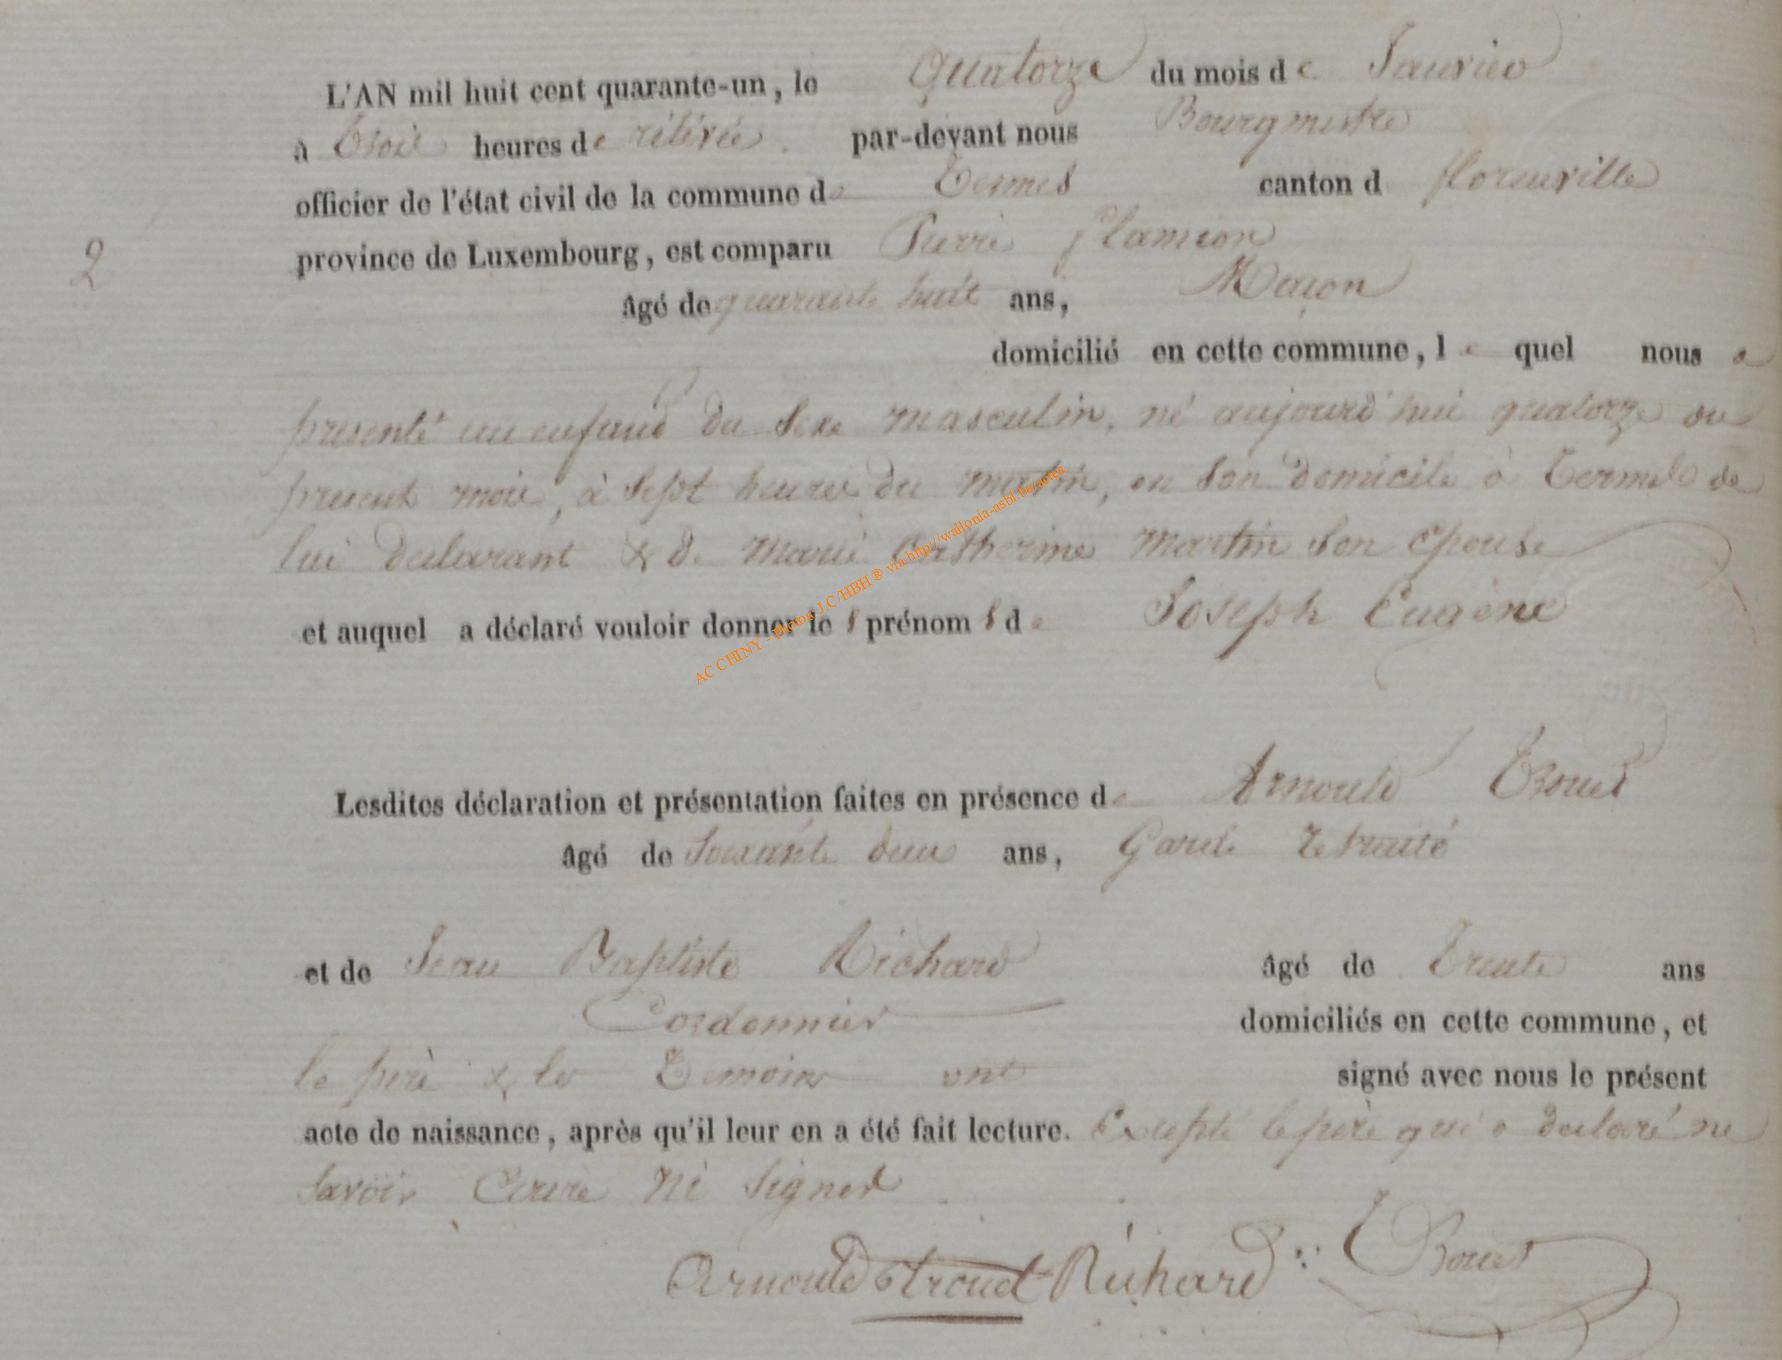 L'AN mil huit cent quarante-un, le Quatorze du mois de Janvier
à trois heures de relevée. par-devant nous Bourgmestre
officier de l'état civil de la commune de Termes canton d florenville
2
province de Luxembourg, est comparu Pierre flamion
âgé de quarante huit ans, Maçon
domicilié en cette commune, le quel nous a
presenté un enfant du Sexe masculin, né aujourd'hui quatorze du
present mois, à Sept heures du matin, en Son domicile à Termes de
lui declarant & de Marie Catherine Martin Son epouse
et auquel a déclaré vouloir donner les prénoms de Joseph Eugène
AC CHINY - Photos J C/HBH ® via http://wallonia-asbl.be
Lesdites déclaration et présentation faites en présence de Arnould
âgé de Soixante deux ans, Garde retraité
et de Jean Baptiste Richard âgé de Trente ans
Cordonnier domiciliés en cette commune, et
le père & les Temoins ont signé avec nous le présent
acte de naissance, après qu'il leur en a été fait lecture. Excepté le père qui a declaré ne
Savoir Ecrire ni Signer
Arnould Richard